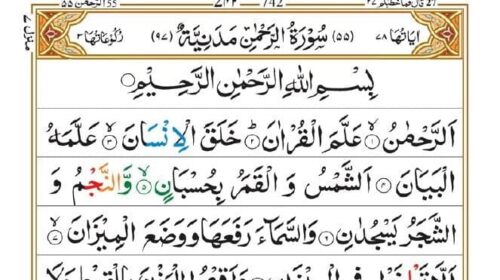 الرحمن ٥٥ 742 قال فما خطبكم ٢٧
اٰیَاتُهَا ٧٨ (٥٥) سُوْرَةُ الرَّحْمٰنِ مَدَنِیَّةٌ (٩٧) رُكُوْعَاتُهَا ٣
بِسْمِ اللّٰهِ الرَّحْمٰنِ الرَّحِیْمِ
اَلرَّحْمٰنُ ۙ﴿١﴾ عَلَّمَ الْقُرْاٰنَ ؕ﴿٢﴾ خَلَقَ الْاِنْسَانَ ۙ﴿٣﴾ عَلَّمَهُ
الْبَیَانَ ﴿٤﴾ اَلشَّمْسُ وَ الْقَمَرُ بِحُسْبَانٍ ۪﴿٥﴾ وَّالنَّجْمُ وَ
الشَّجَرُ یَسْجُدٰنِ ﴿٦﴾ وَالسَّمَآءَ رَفَعَهَا وَوَضَعَ الْمِیْزَانَ ۙ﴿٧﴾